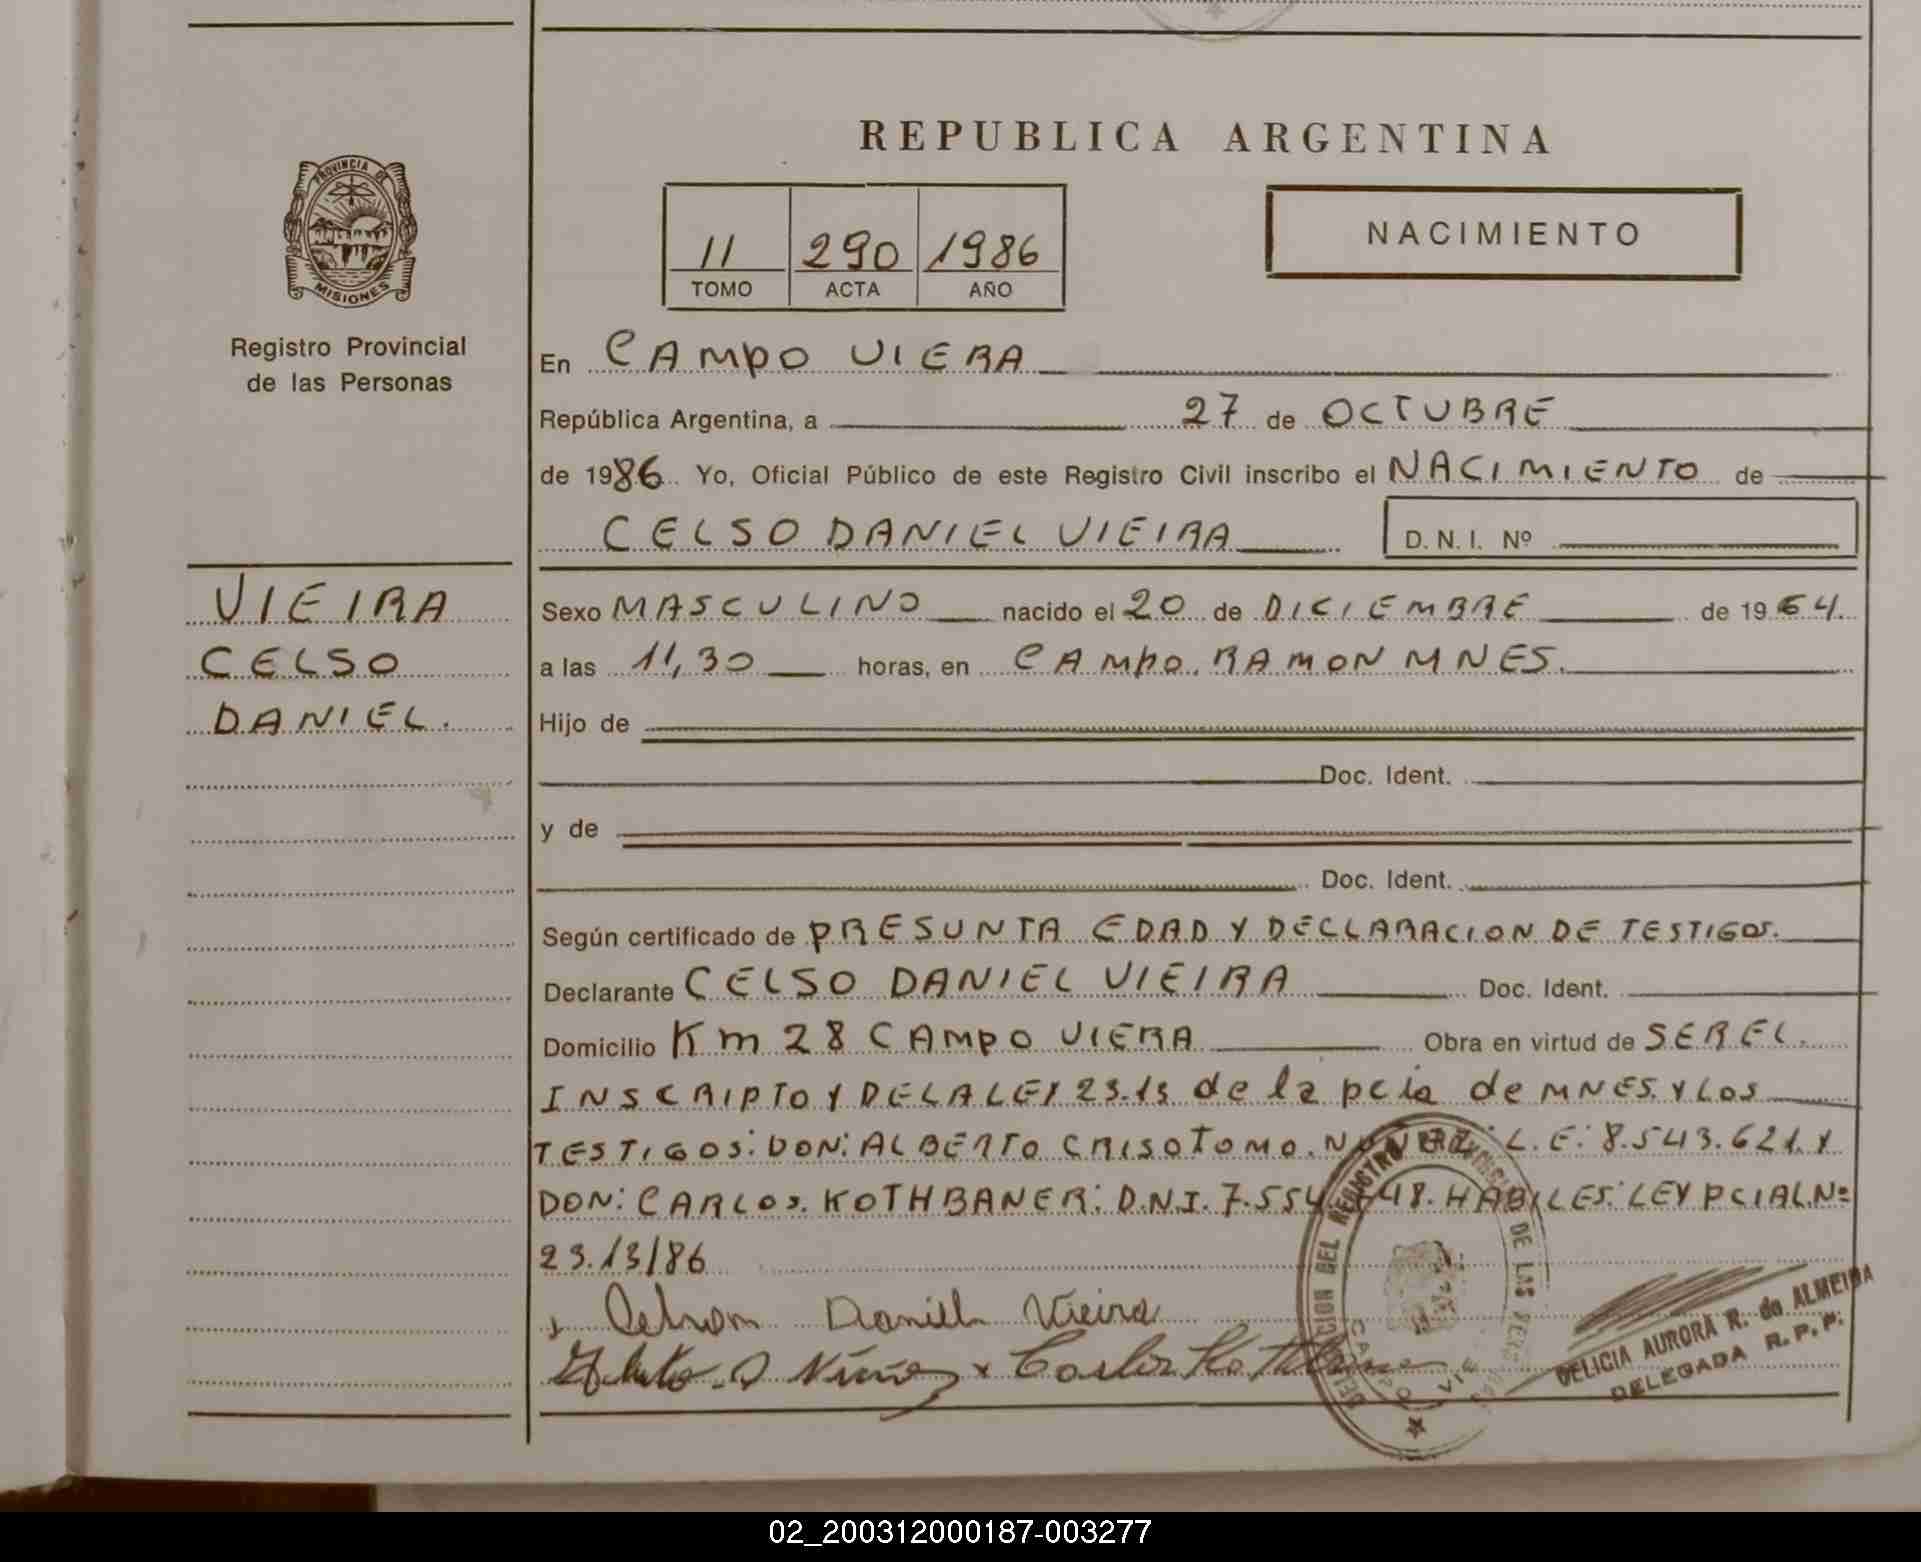 REPUBLICA ARGENTINA
PROVINCIA DE
MISIONES
Registro Provincial
de las Personas
11 290 1986
TOMO ACTA AÑO
NACIMIENTO
En CAMPO VIERA
República Argentina, a 27 de OCTUBRE
de 1986 Yo, Oficial Público de este Registro Civil inscribo el NACIMIENTO de
CELSO DANIEL VIEIRA D.N.I. Nº
VIEIRA
CELSO
DANIEL.
Sexo MASCULINO nacido el 20 de DICIEMBRE de 1964.
a las 11,30 horas, en CAMPO RAMON MNES.
Hijo de
Doc. Ident.
y de
Doc. Ident.
Según certificado de PRESUNTA EDAD Y DECLARACION DE TESTIGOS.
Declarante CELSO DANIEL VIEIRA Doc. Ident.
Domicilio Km 28 CAMPO VIERA Obra en virtud de SER EL
INSCRIPTO Y DE LA LEY 23.13 de la pcia de MNES. Y LOS
TESTIGOS: DON: ALBERTO CRISOTOMO. NUNEZ: L.E: 8.543.621. Y
DON: CARLOS. KOTHBANER: D.N.I. 7.554 48. HABILES: LEY PCIAL. Nº
23.13/86
Daniel Vieira
Núñez x Carlos
DELEGACION DEL REGISTRO PROVINCIAL DE LAS
DELICIA AURORA R. da ALMEIDA
DELEGADA R.P.P.
02_200312000187-003277